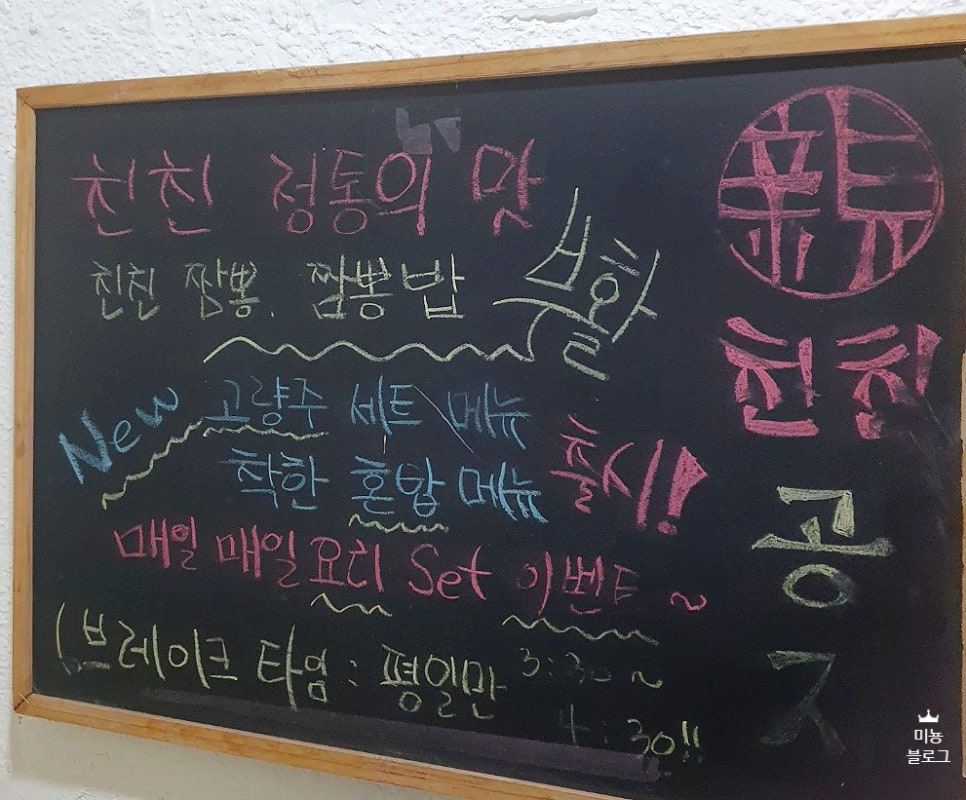 친친 정통의 맛
친친 짬뽕. 짬뽕밥 부활
New 고량주 세트 메뉴
착한 혼밥 메뉴 출시!
매일 매일 요리 Set 이벤트 ~
(브레이크 타임 : 평일만 3:30 ~
4:30!!
친친
공지
미뇽
블로그